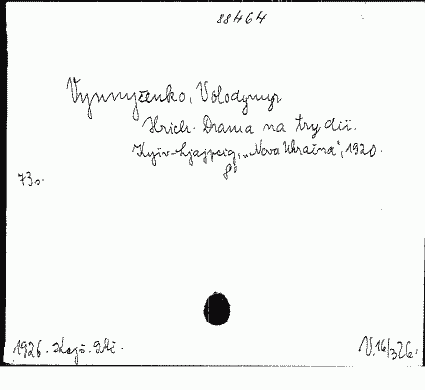 88464
Vynnyčenko, Volodymyr
Hrich. Drama na try diï.
Kyïv-Ljajpcig, „Nova Ukraïna", 1920.
8°
73 s.
1926.
V.16/326.